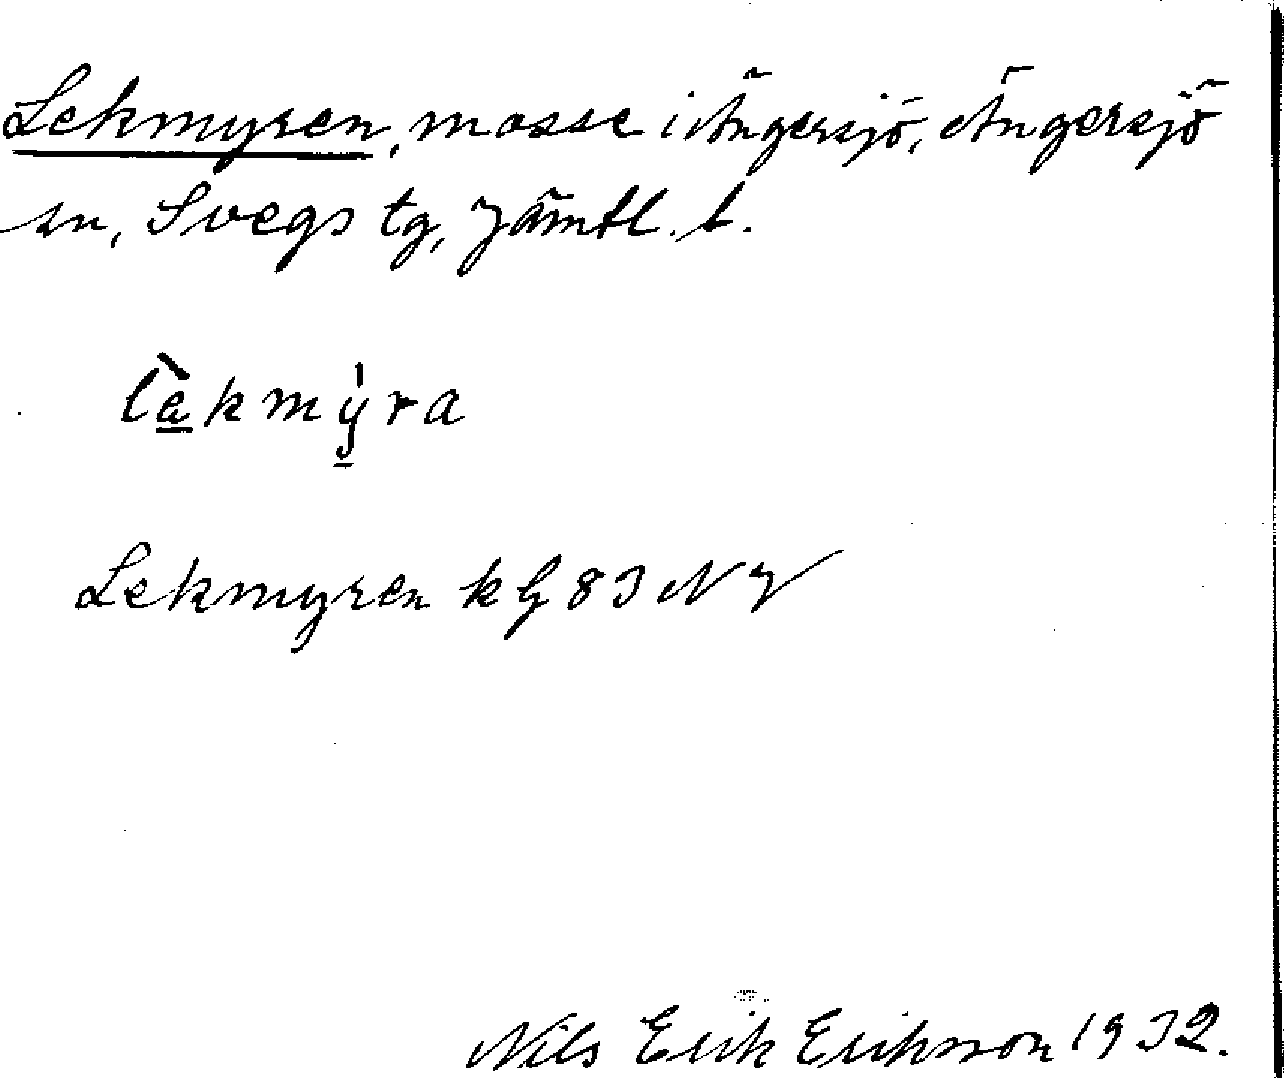 Lekmyren, mosse i Ängersjö, Ängersjö
sn, Svegs tg, Jämtl. l.
lèkmýra
Lekmyren kg 83 NV
Nils Erik Eriksson 1932.